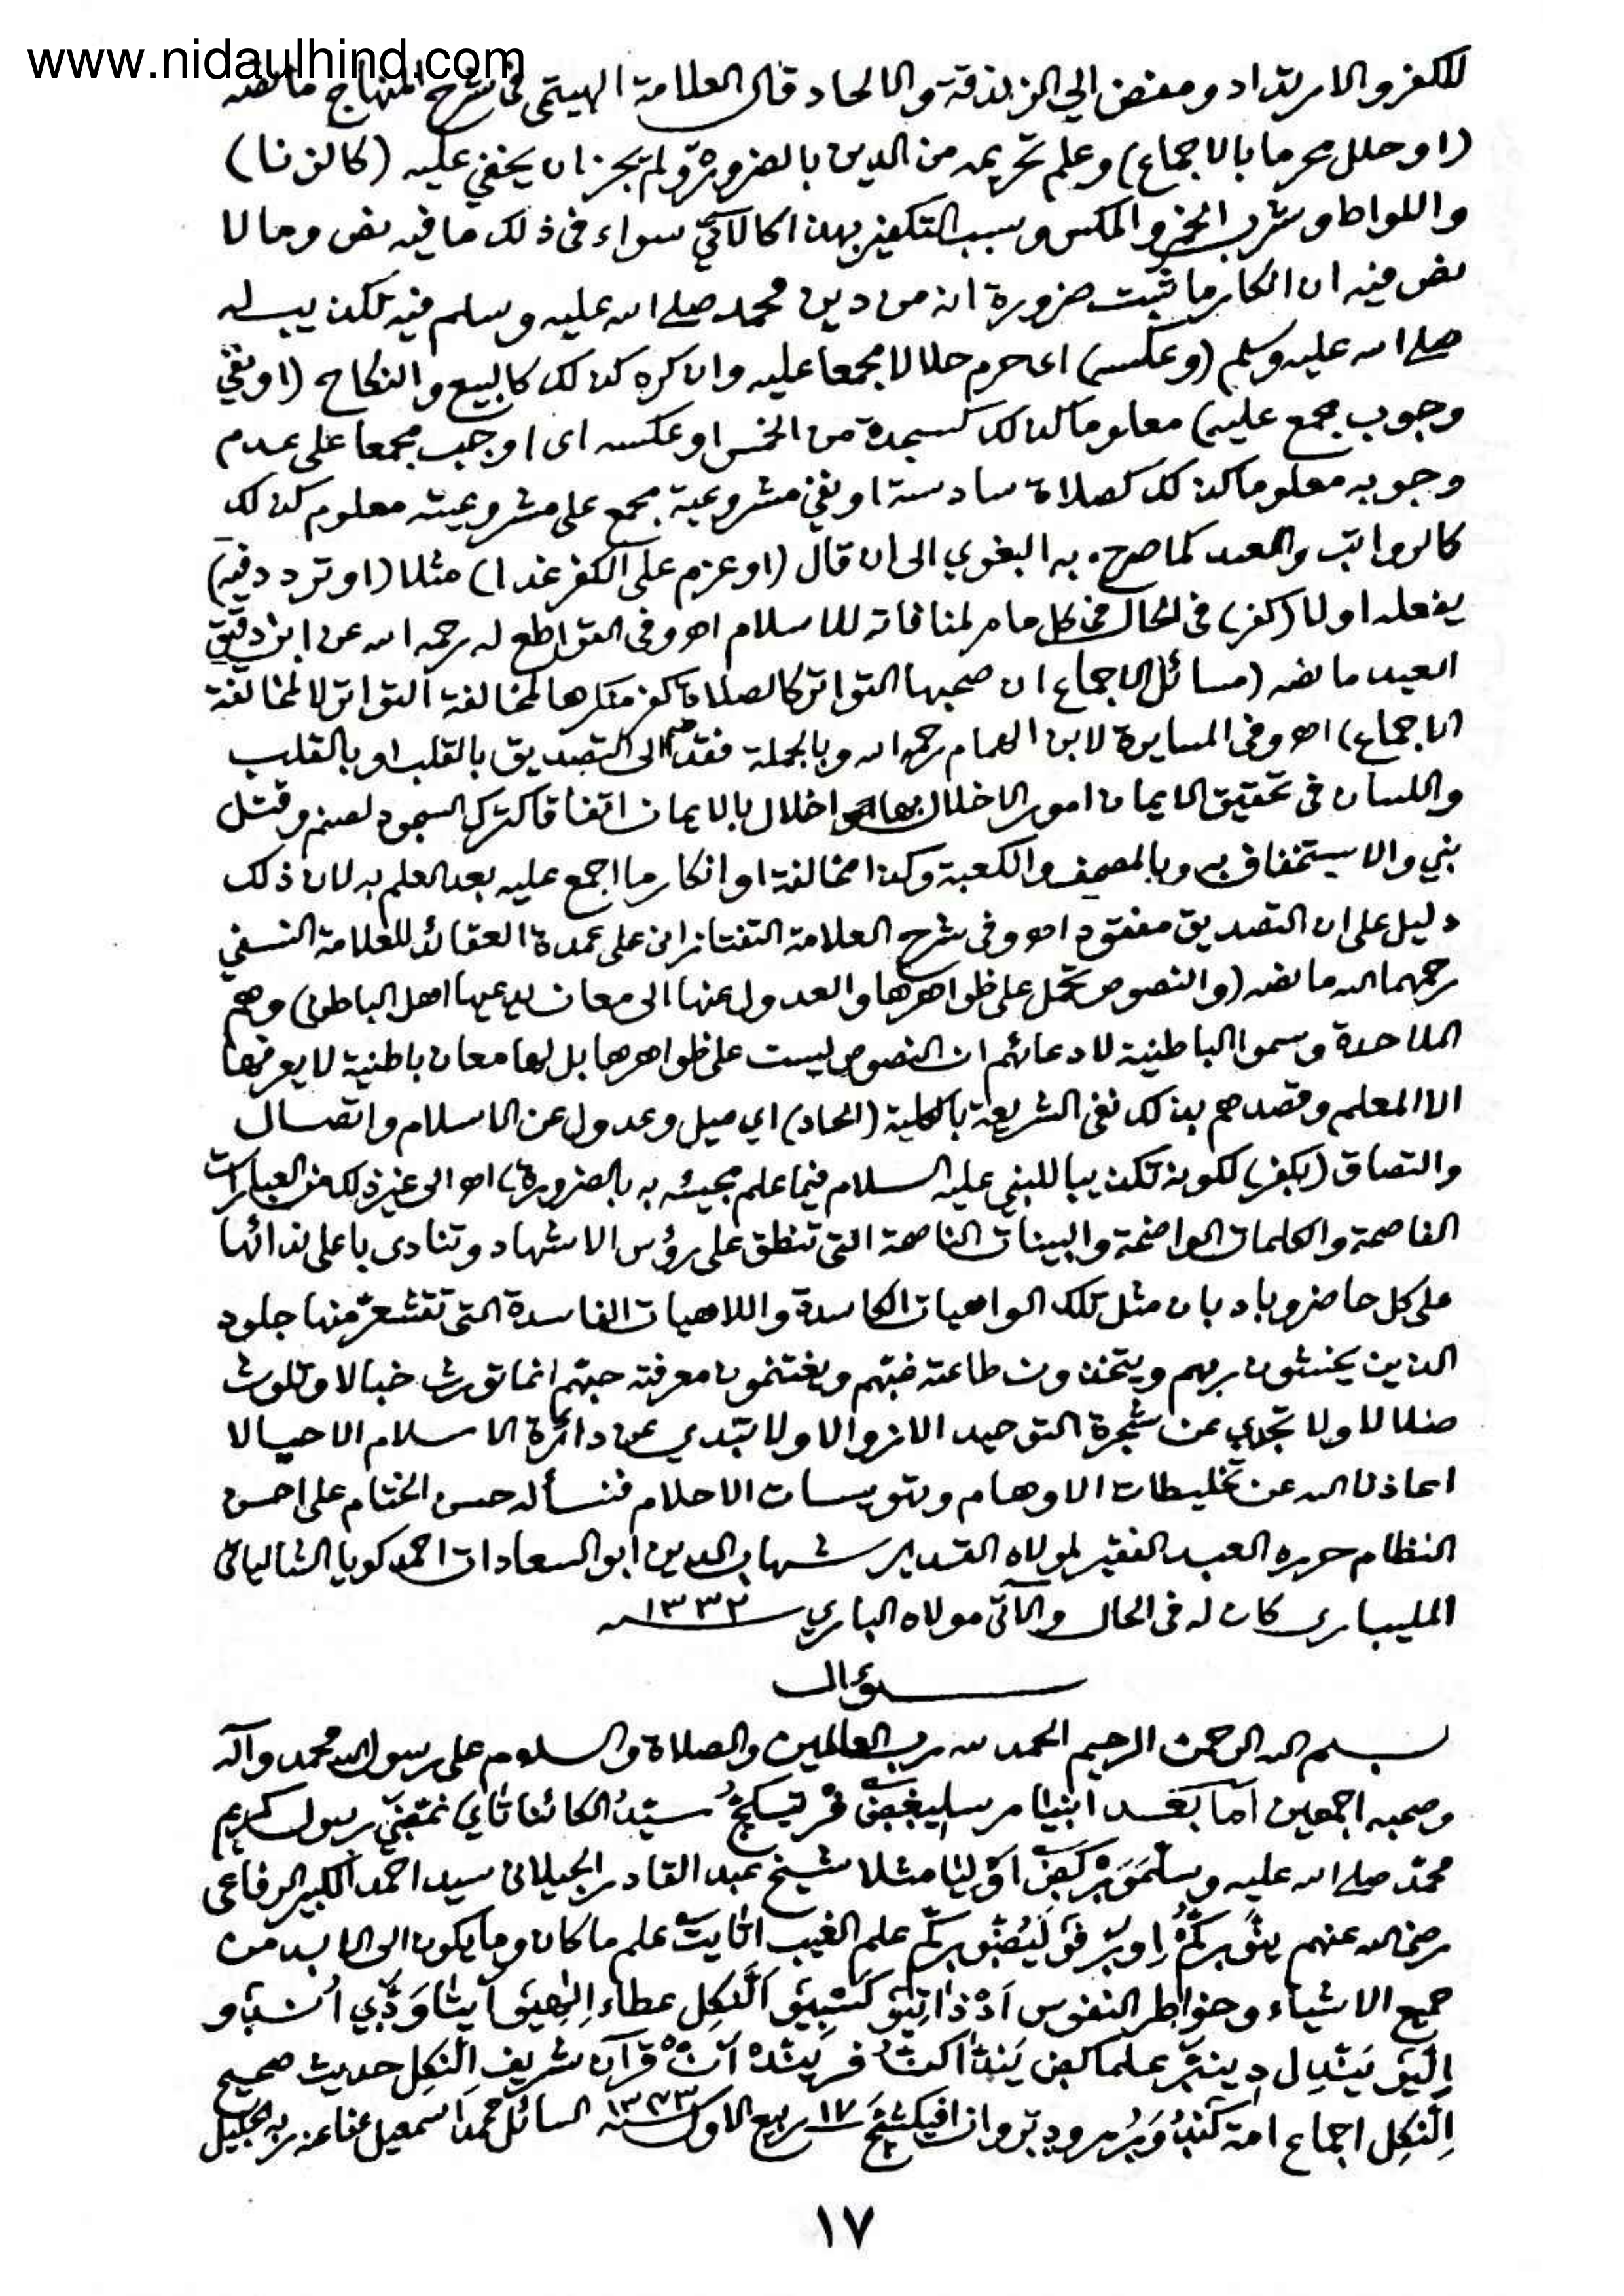 www.nidaulhind.com
للكفر والارتداد ومفض الي الزندقة والالحاد قال العلامة الهيتمى فى شرح المنهاج ما نصه
(او حلل محرما بالاجماع) وعلم تحريمه من الدين بالضرورة ولم يجز ان يخفي عليه (كالزنا)
واللواط وشرب الخمر والمكس وسبب التكفير بهذا كالآتي سواء فى ذلك ما فيه نص وما لا
نص فيه ان انكار ما ثبت ضرورة انه من دين محمد صلى الله عليه وسلم فيه تكذيب له
صلى الله عليه وسلم (وعكسه) اى حرم حلالا مجمعا عليه وان كره كذلك كالبيع والنكاح (او نفي
وجوب مجمع عليه) معلوما كذلك كسجدة من الخمس او عكسه اى اوجب مجمعا على عدم
وجوبه معلوما كذلك كصلاة سادسة او نفي مشروعية مجمع على مشروعيته معلوم كذلك
كالرواتب والعيد كما صرح به البغوي الى ان قال (او عزم على الكفر غدا) مثلا (او تردد فيه)
يفعله اولا (كفر) فى الحال فى كل ما مر لمنافاته للاسلام اھ وفى القواطع له رحمه الله عن ابن دقيق
العيد ما نصه (مسائل الاجماع ان صحبها التواتر كالصلاة كفر منكرها لمخالفة التواتر لا لمخالفة
الاجماع) اھ وفى المسايرة لابن الهمام رحمه الله وبالجملة فقد ضم الى التصديق بالقلب او بالقلب
واللسان فى تحقيق الايمان امور الاخلال بها اخلال بالايمان اتفاقا كترك السجود لصنم وقتل
نبي والاستخفاف به وبالمصحف والكعبة وكذا مخالفة او انكار ما اجمع عليه بعد العلم به لان ذلك
دليل على ان التصديق مفقود اھ وفى شرح العلامة التفتازانى على عمدة العقائد للعلامة النسفي
رحمهما الله ما نصه (والنصوص تحمل على ظواهرها والعدول عنها الى معان يدعيها اهل الباطن) وهم
الملاحدة وسموا الباطنية لادعائهم ان النصوص ليست على ظواهرها بل لها معان باطنية لا يعرفها
الا المعلم وقصدهم بذلك نفى الشريعة بالكلية (الحاد) اي ميل وعدول عن الاسلام واتصال
والتصاق (بكفر) لكونه تكذيبا للنبي عليه السلام فيما علم مجيئه به بالضرورة) اھ الى غير ذلك من العبارات
الفاصحة والكلمات الواضحة والبينات الناصحة التى تنطق على رؤس الاشهاد وتنادى باعلى ندائها
على كل حاضر وباد بان مثل تلك الواهيات الكاسدة واللاهيات الفاسدة التى تقشعر منها جلود
الذين يخشون ربهم ويتخذون طاعته ويغتنمون معرفته حبهم انما تورث خبالا وتلوث
ضلالا ولا تجدي عن شجرة التوحيد الا زوالا ولا تبدي عن دائرة الاسلام الا حيالا
اعاذنا الله عن تخليطات الاوهام وتويسات الاحلام فنسأله حسن الختام على احسن
النظام حرره العبد الفقير لمولاه القدير شهاب الدين ابو السعادات احمد كويا الشالياتى
المليبارى كان له فى الحال والآتى مولاه الباري ١٣٣٢
سؤال
بسم الله الرحمن الرحيم الحمد لله رب العالمين والصلاة والسلام على رسوله محمد وآله
وصحبه اجمعين اما بعد انبيا سيد الكائنات رسول كريم
محمد صلى الله عليه وسلم مثلا شيخ عبد القادر الجيلانى سيد احمد الكبير الرفاعى
رضى الله عنهم علم الغيب علم ما كان وما يكون الى الابد من
جميع الاشياء وخواطر النفوس عطاء
قرآن شريف حديث صحيح
اجماع امة ١٧ ربيع الاول ١٣٤٣ السائل محمد اسمعيل عفا عنه ربه الجليل
١٧